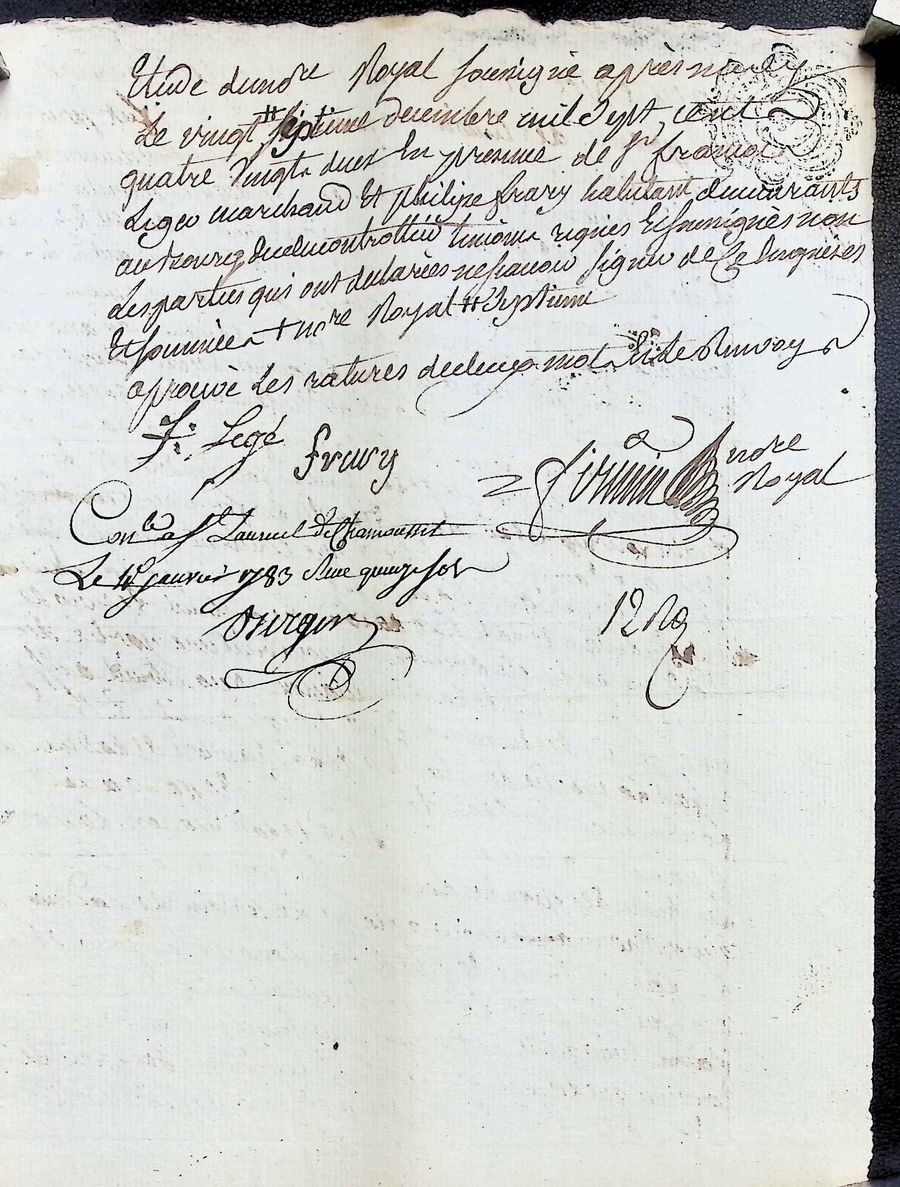 Etude du no.re Royal soussigné après midy
Le vingt # septieme decembre mil sept cent
quatre vingt deux En présence de S.r francois
Legé marchand Et philipe frary habitant demeurants
au Bourg temoins requis Et soussignés non
Les parties qui ont declarées ne scavoir signer de ce Enquises
Et sommées no.re Royal # septieme
aprouvé Les ratures de mot Et le Renvoy
F. Legé
frary
no.re
Royal
Con.lé a S.t Laurent de Chamousset
Le 4.e janvier 1783 Reçu quinze sols